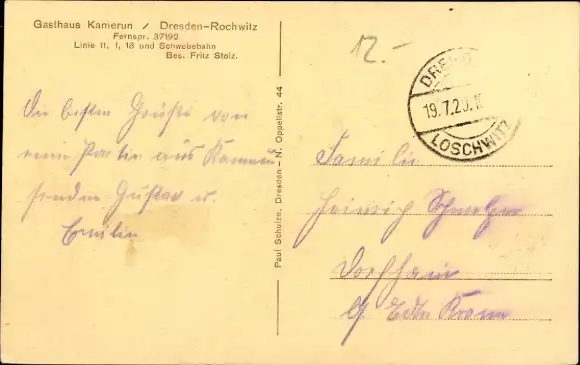 Gasthaus Kamerun / Dresden-Rochwitz
Fernspr. 37192
Linie 11, 1, 18 und Schwebebahn
Bes. Fritz Stolz.
12.-
DRESD
19.7.29.
LOSCHWITZ
Die besten Grüße von
Partie aus Kamerun
senden Gustav u.
Emilie
Paul Schulze, Dresden-N. Oppellstr. 44
Familie
Heinrich
Dorfhain